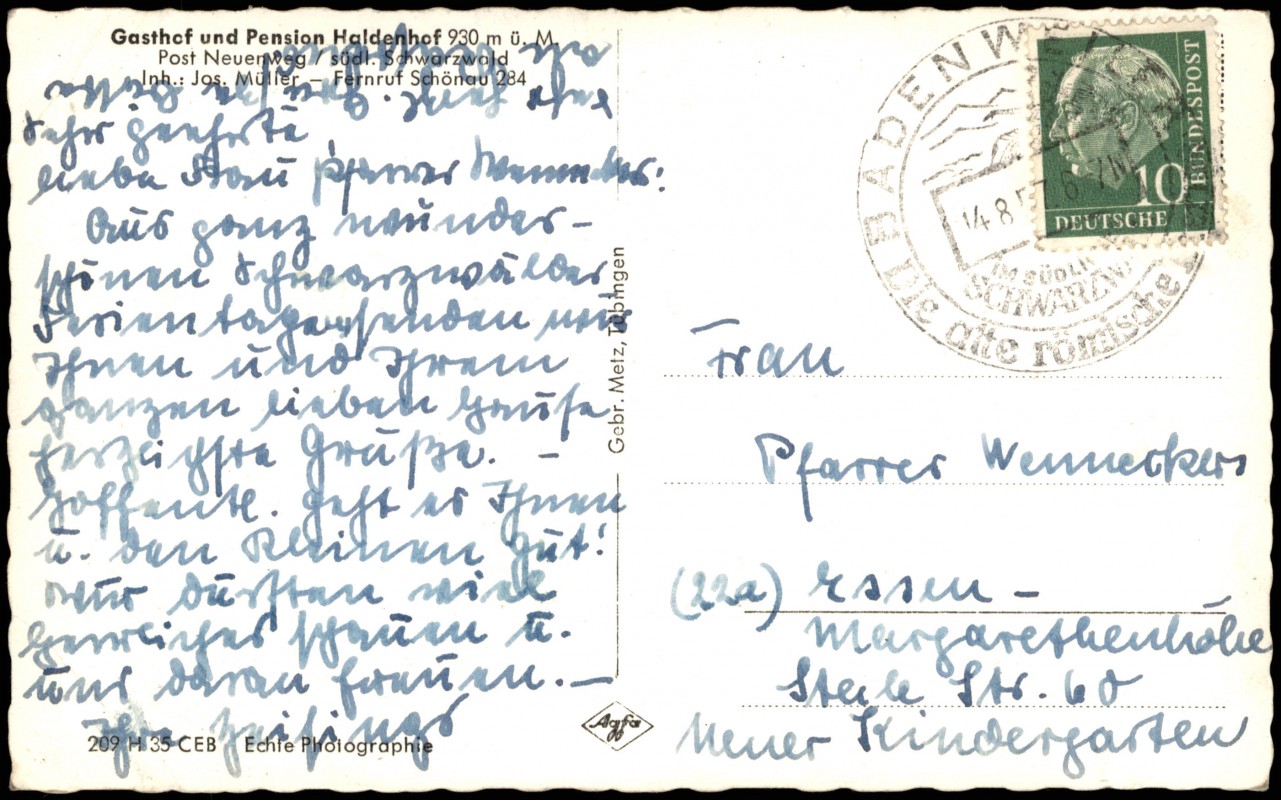 Gasthof und Pension Haldenhof 930 m ü. M.
Post Neuenweg / südl. Schwarzwald
Inh.: Jos. Müller – Fernruf Schönau 284
Sehr geehrte
liebe Frau Pfarrer
Aus ganz wunder-
schönen Schwarzwälder
Ferientagen senden wir
Ihnen und Ihrem
ganzen lieben Hause
herzlichste Grüße. –
Hoffentl. geht es Ihnen
u. den Kleinen gut!
Wir durften viel
Herrliches schauen u.
uns daran freuen. –
Ihre
209 H 35 CEB Echte Photographie
Gebr. Metz, Tübingen
Agfa
BADENWEI
14.8.5
IM SÜDL
SCHWARZW
Die alte römische
10
DEUTSCHE
BUNDESPOST
Frau
Pfarrer Wenneckers
(22a) Essen –
Margarethenhöhe
Steile Str. 60
Neuer Kindergarten